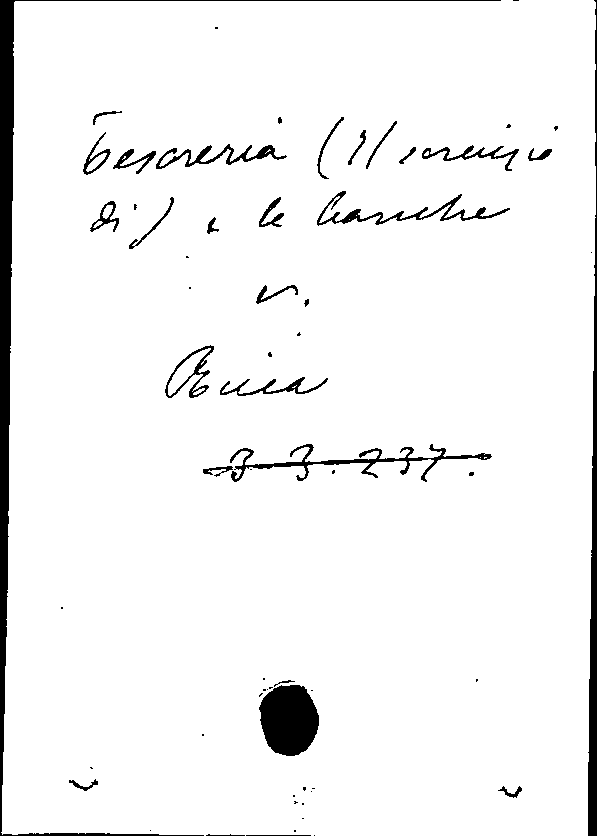 Tesoreria (Il servizio
di) e le banche
v.
3 3. 237.